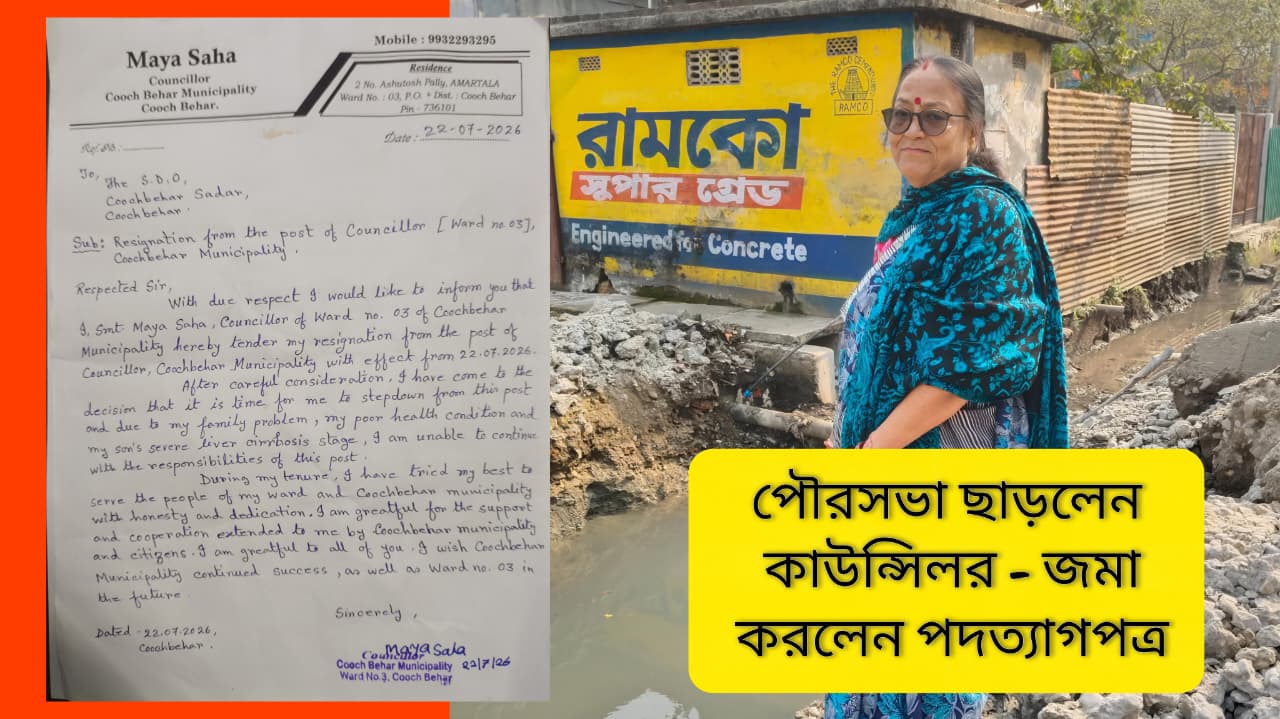 Maya Saha
Councillor
Cooch Behar Municipality
Cooch Behar.
Mobile : 9932293295
Residence
2 No. Ashutosh Pally, AMARTALA
Ward No. : 03, P.O. + Dist. : Cooch Behar
Pin - 736101
Ref. No.
Date: 22-07-2026
To,
The S.D.O,
Coochbehar Sadar,
Coochbehar.
Sub: Resignation from the post of Councillor [Ward no.03],
Coochbehar Municipality.
Respected Sir,
With due respect I would like to inform you that
I, Smt Maya Saha, Councillor of Ward no. 03 of Coochbehar
Municipality hereby tender my resignation from the post of
Councillor, Coochbehar Municipality with effect from 22.07.2026.
After careful consideration, I have come to the
decision that it is time for me to stepdown from this post
and due to my family problem, my poor health condition and
my son's severe liver cirrhosis stage, I am unable to continue
with the responsibilities of this post.
During my tenure, I have tried my best to
serve the people of my ward and Coochbehar municipality
with honesty and dedication. I am greatful for the support
and cooperation extended to me by Coochbehar municipality
and citizens. I am greatful to all of you. I wish Coochbehar
Municipality continued success, as well as Ward no. 03 in
the future.
Sincerely,
Dated - 22.07.2026,
Coochbehar.
Maya Saha
22/7/26
Councillor
Cooch Behar Municipality
Ward No.3, Cooch Behar
THE RAMCO CEMENTS LTD
RAMCO
রামকো
সুপার গ্রেড
Engineered for Concrete
পৌরসভা ছাড়লেন
কাউন্সিলর - জমা
করলেন পদত্যাগপত্র